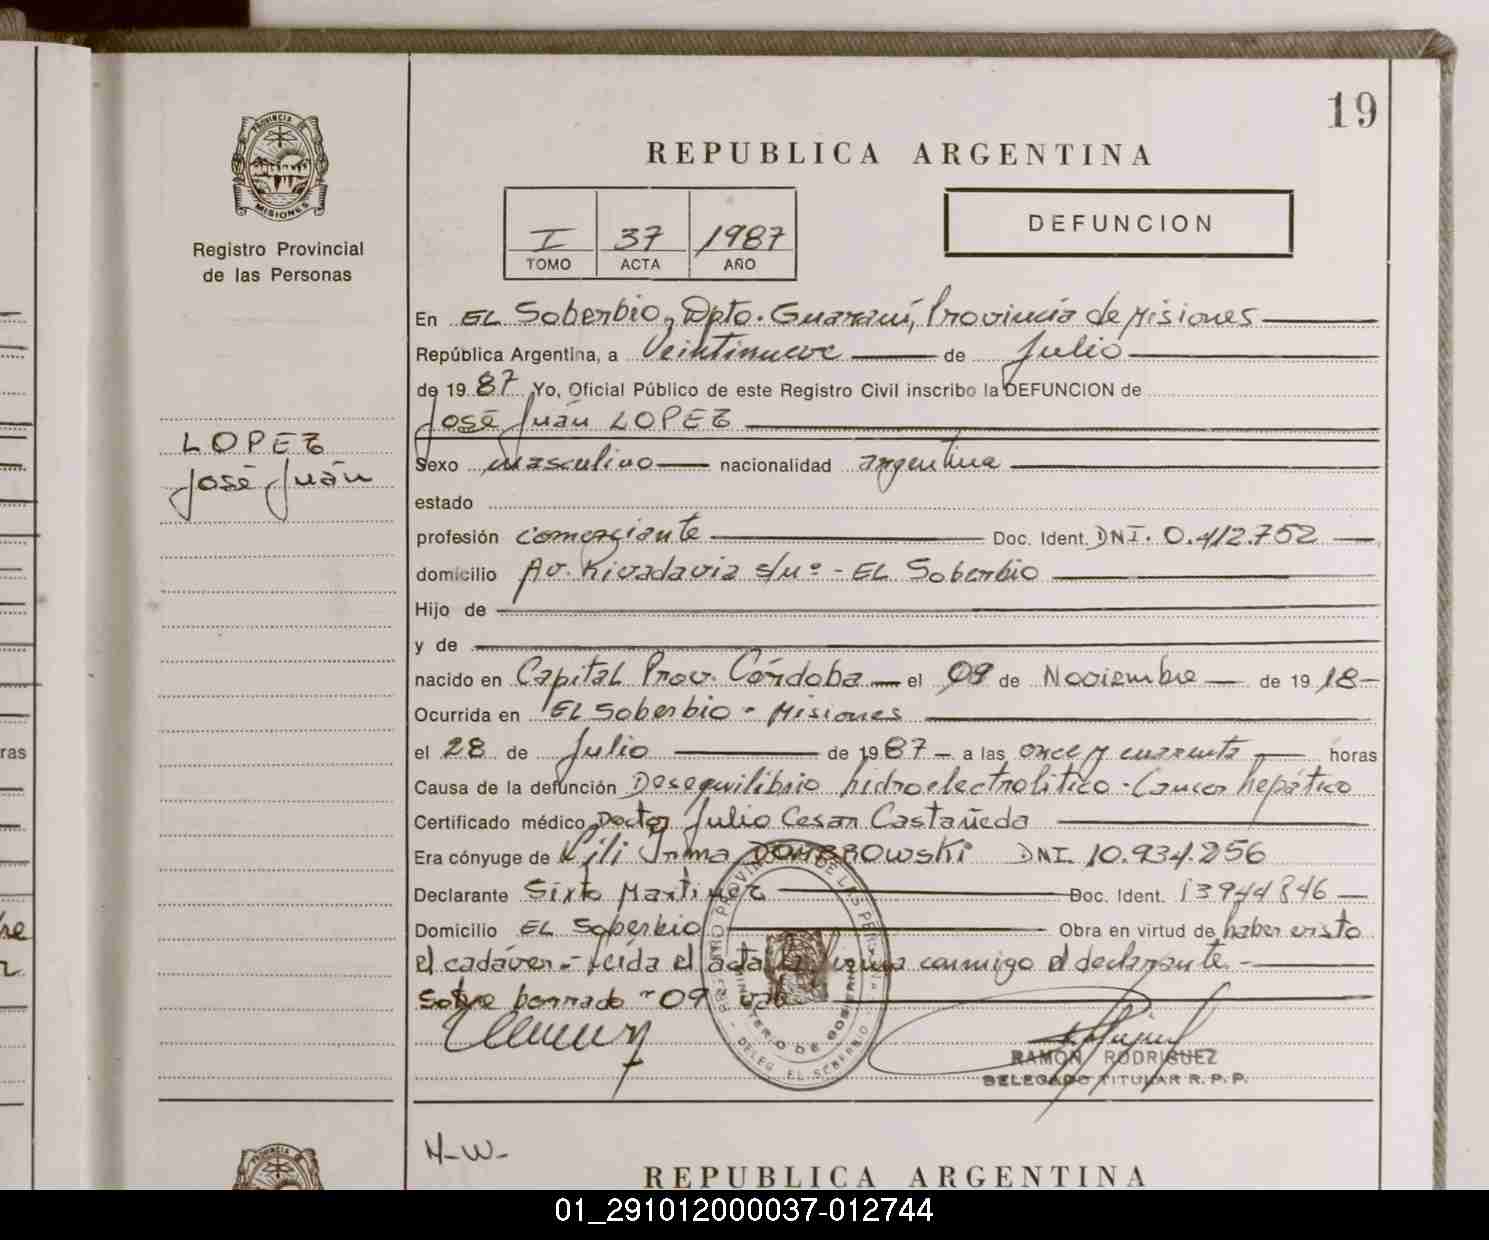 19
PROVINCIA DE
MISIONES
Registro Provincial
de las Personas
REPUBLICA ARGENTINA
I 37 1987
TOMO ACTA AÑO
DEFUNCION
LOPEZ
José Juán
En EL Soberbio, Dpto. Guaraní, Provincia de Misiones
República Argentina, a Veintinueve de Julio
de 19 87 Yo, Oficial Público de este Registro Civil inscribo la DEFUNCION de
José Juán LOPEZ
Sexo masculino nacionalidad argentina
estado
profesión comerciante Doc. Ident. DNI. 0.412.752
domicilio Av. Rivadavia s/nº - EL Soberbio
Hijo de
y de
nacido en Capital Prov. Córdoba el 09 de Noviembre de 19 18
Ocurrida en EL Soberbio - Misiones
el 28 de Julio de 19 87 a las once y cuarenta horas
Causa de la defunción Desequilibrio hidroelectrolitico - Cancer hepático
Certificado médico Doctor Julio Cesar Castañeda
Era cónyuge de Lili Irma DOMBROWSKI DNI. 10.934.256
Declarante Sixto Martinez Doc. Ident. 13944846
Domicilio EL Soberbio Obra en virtud de haber visto
el cadáver.- Leída el acta la firma conmigo el declarante.-
Sobre borrado "09" vale
RAMON RODRIGUEZ
DELEGADO TITULAR R. P. P.
REGISTRO PROVINCIAL DE LAS PERSONAS
MINISTERIO DE GOBIERNO
DELEG. EL SOBERBIO
H-W-
REPUBLICA ARGENTINA
PROVINCIA DE
ras
01_291012000037-012744